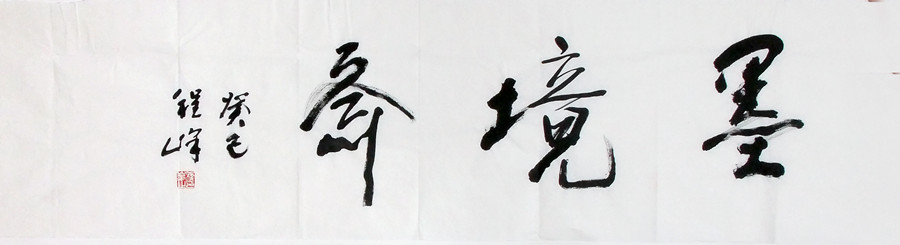 墨境斋
癸巳
程峰